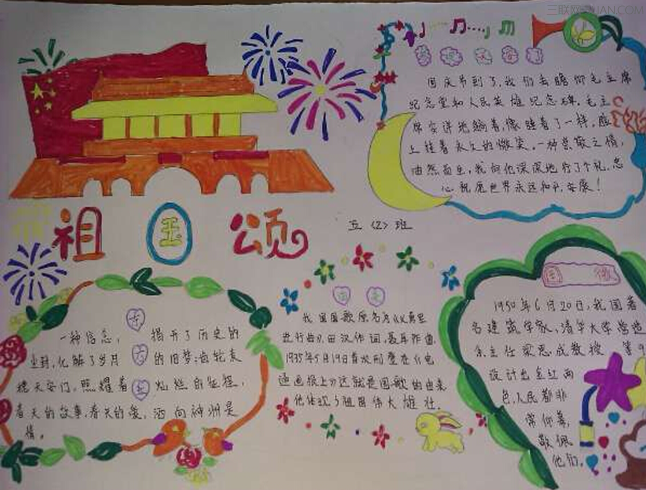 祖国颂
五(2)班
国庆节到了,我们去瞻仰毛主席
纪念堂和人民英雄纪念碑,毛主
席安详地躺着,像睡着了一样,脸
上挂着永久的微笑,一种崇敬之情,
油然而生,我向他深深地行了个礼,忠
心祝愿世界永远和平,安康!
一种信念, 揭开了历史的
尘封,化解了岁月 的旧梦;齿轮麦
穗天安门,照耀着 灿烂的征程,
春天的故事,春天的爱,洒向神州是
情。
国歌
我国国歌原名为《义勇军
进行曲》,田汉作词,聂耳作曲,
1935年5月19日首次刊登在《电
通画报上》,这就是国歌的由来
他体现了祖国伟大雄壮。
国徽
1950年6月20日,我国著
名建筑学家、清华大学营造
余主任梁思成教授 等9
设计出金红两
色,人民都非
常仰慕,
敬佩
他们。